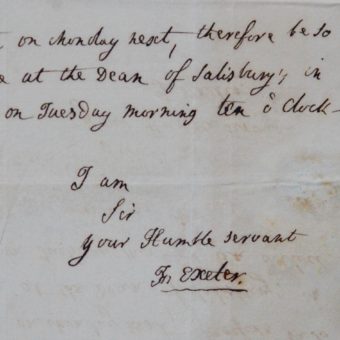 on Monday next, therefore be so
at the Dean of Salisbury's in
on Tuesday morning ten o'clock-
I am
Sir
your Humble servant
Jn Exeter.